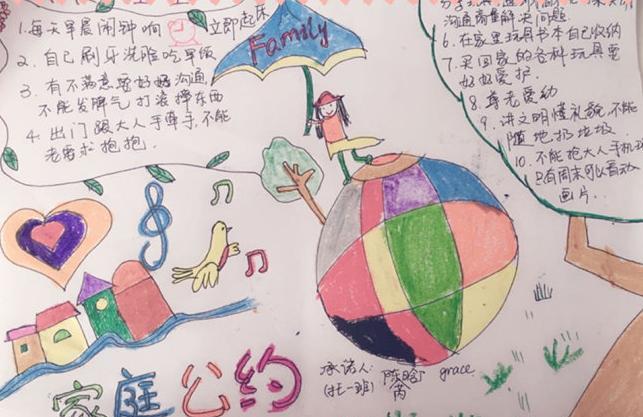 1.每天早晨闹钟响 立即起床
2.自己刷牙洗脸吃早饭
3.有不满意要好好沟通,
不能发脾气打滚摔东西
4.出门跟大人手牵手,不能
老要求抱抱.
Family
沟通商量解决问题.
6.在家里玩具书本自己收纳
7.买回家的各种玩具要
好好爱护.
8.尊老爱幼
9.讲文明懂礼貌,不能
随地扔垃圾.
10.不能抢大人手机玩
只有周末可以看动
画片.
家庭公约
承诺人: 陈晗芮 grace.
(托一班)